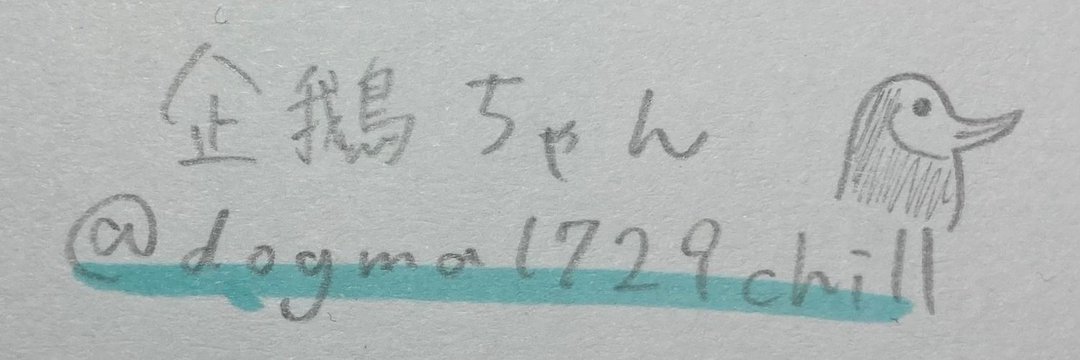 企鵝ちゃん
@dogma1729chill